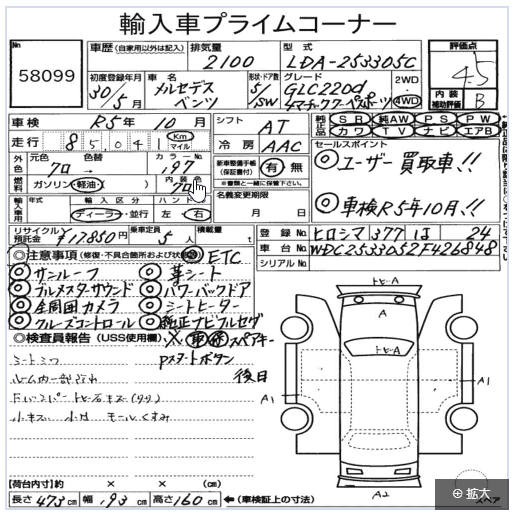 輸入車プライムコーナー
No 58099
車歴 (自家用以外は記入) 排気量 2100 型式 LDA-253305C 評価点 4.5
初度登録年月 30/5月 車名 メルセデスベンツ 形状・ドア数 5/SW グレード GLC220d 4マチックスポーツ 2WD 4WD 内装補助評価 B
車検 R5年 10月 シフト AT 純正品 SR 純AW PS PW
走行 85,041 Km マイル 冷房 AAC カワ TV ナビ エアB
外色 元色 クロ → 色替 カラーNo. 197 新車整備手帳(保証書付) 有 無 セールスポイント
燃料 ガソリン・軽油・( ) 内装色 クロ ※書類と一緒に保管下さい。 ◎ユーザー買取車!!
輸入車用 年式 輸入区分 ハンドル 名義変更期限
ディーラー・並行 左・右 月 日 ◎車検R5年10月!!
リサイクル預託金 ¥17850円 乗車定員 5人 積載量 t 登録No. ヒロシマ 377 は 24
◎注意事項(修復・不具合箇所および状態) ETC 車台No. WDC2533052F426848
◎サンルーフ ◎革シート シリアルNo.
◎ブルメスターサウンド ◎パワーバックドア
◎全周囲カメラ ◎シートヒーター
◎クルーズコントロール ◎純正ナビフルセグ
◎検査員報告(USS使用欄) スペアキー
シートシワ Pスタートボタン
ルーム内一部ヨゴレ 後日
Fバンパー トビ石キズ(タッチ)
小キズ 小凹 モールくすみ
トビ-A
A
トビ-A
A1
A1
A2
スペア
【荷台内寸】約 × × (cm)
長さ 473 cm 幅 193 cm 高さ 160 cm ←(車検証上の寸法)
拡大